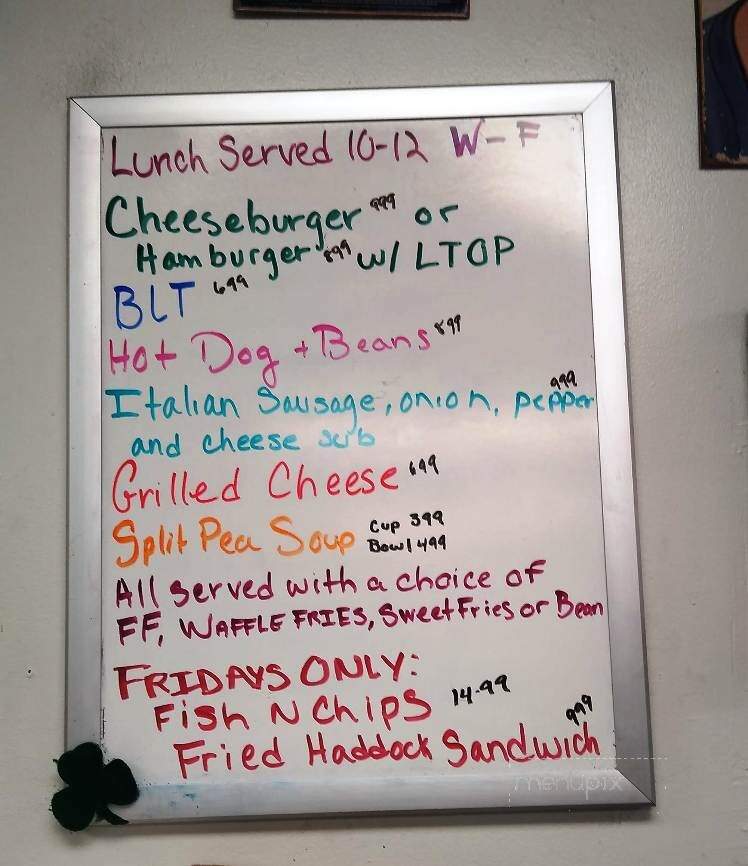 Lunch Served 10-12 W-F
Cheeseburger 999 or
Hamburger 899 w/ LTOP
BLT 699
Hot Dog + Beans 899
Italian Sausage, onion, pepper 999
and cheese sub
Grilled Cheese 699
Split Pea Soup Cup 399
Bowl 499
All served with a choice of
FF, WAFFLE FRIES, Sweet Fries or Bean
FRIDAYS ONLY:
Fish N Chips 14.99
Fried Haddock Sandwich 999
menupix